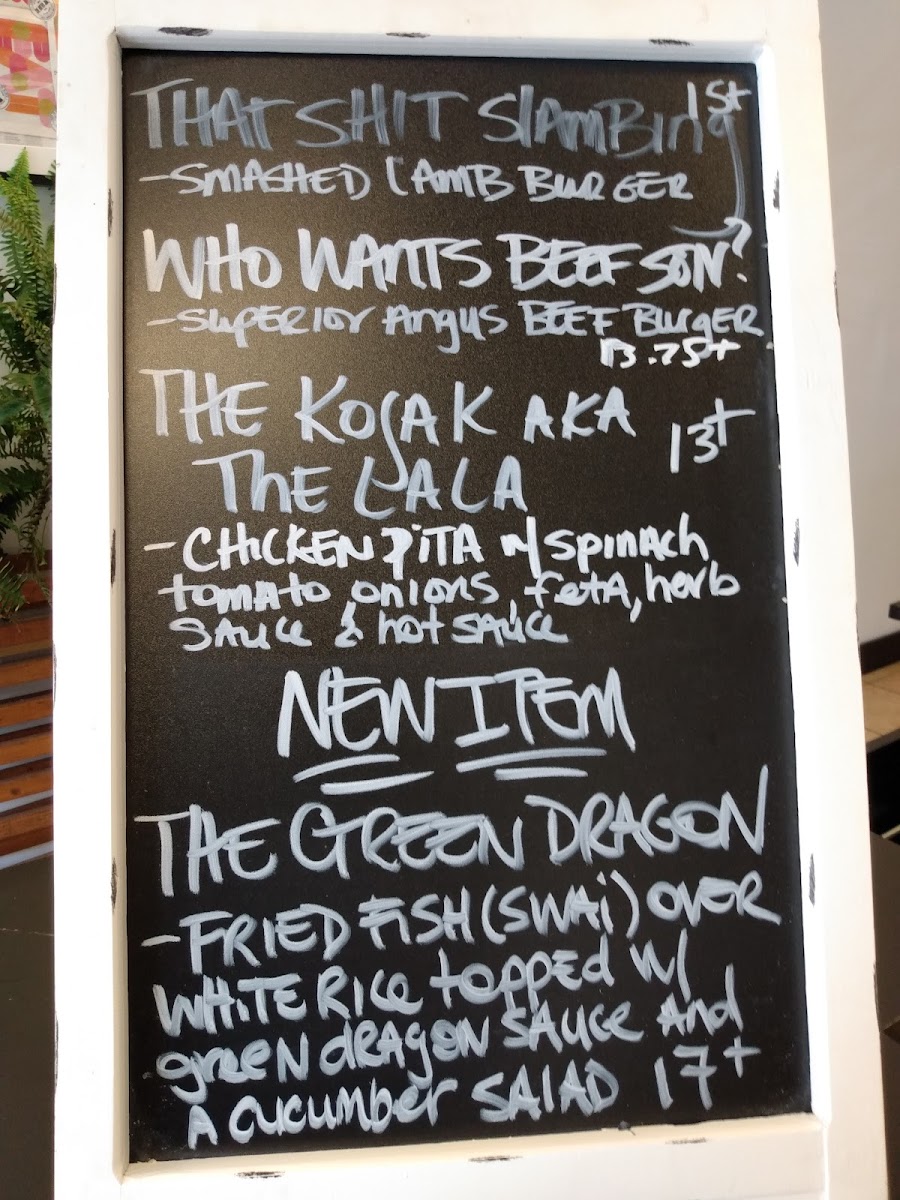 THAT SHIT SlAMBing
15+
-SMASHED LAMB BURGER
WHO WANTS BEEF SON?
-SUPERIOR Angus BEEF BURgER
13.75+
THE KOJAK AKA
13+
THE LALA
-CHICKEN PITA W/ SpinAch
tomato onions feta, herb
SAuce & hot SAuce
NEW ITEM
THE GREEN DRAGON
-FRIED FISH (SWAi) OVER
WHITE RICE topped w/
green dRAGON SAUCE And
A cucumber SALAD 17+